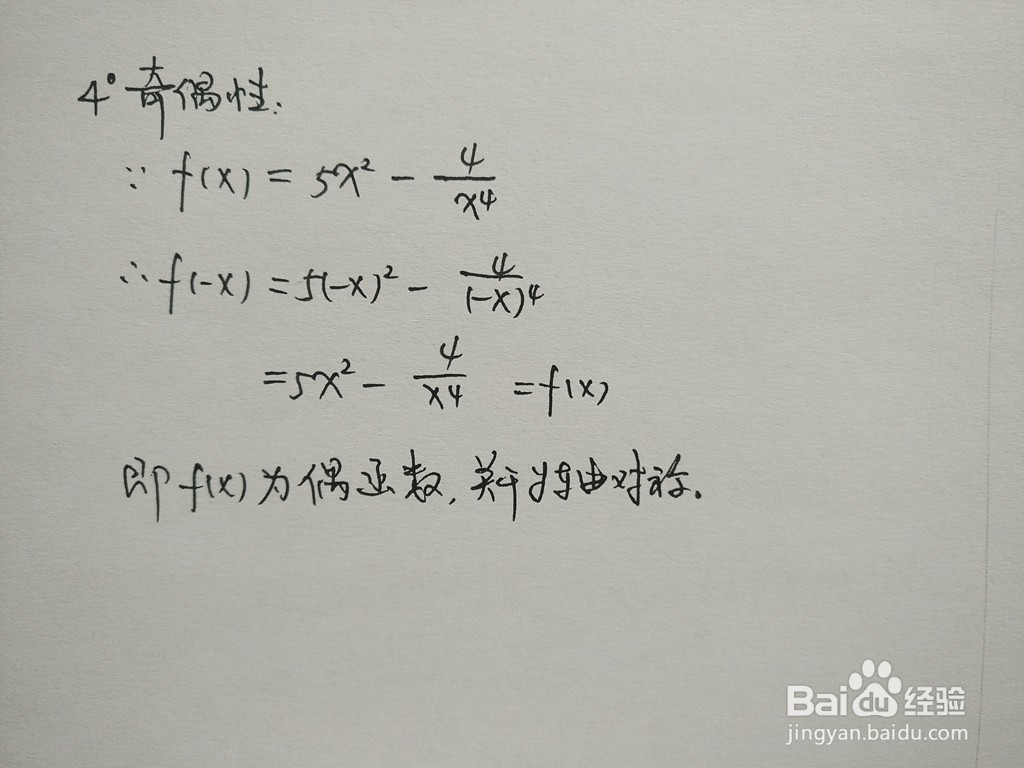 4° 奇偶性.
∵ f(x) = 5x² - 4/x⁴
∴ f(-x) = 5(-x)² - 4/(-x)⁴
= 5x² - 4/x⁴ = f(x)
即 f(x) 为偶函数, 关于y轴对称.
Baidu经验
jingyan.baidu.com